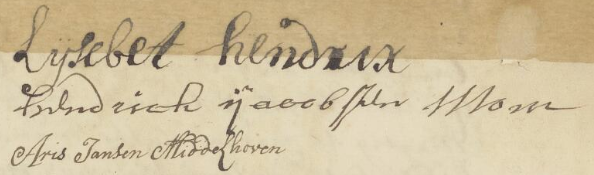 Lijsebet hendrix
hendrick ijacobsen Mom
Aris Jansen Middelhoven